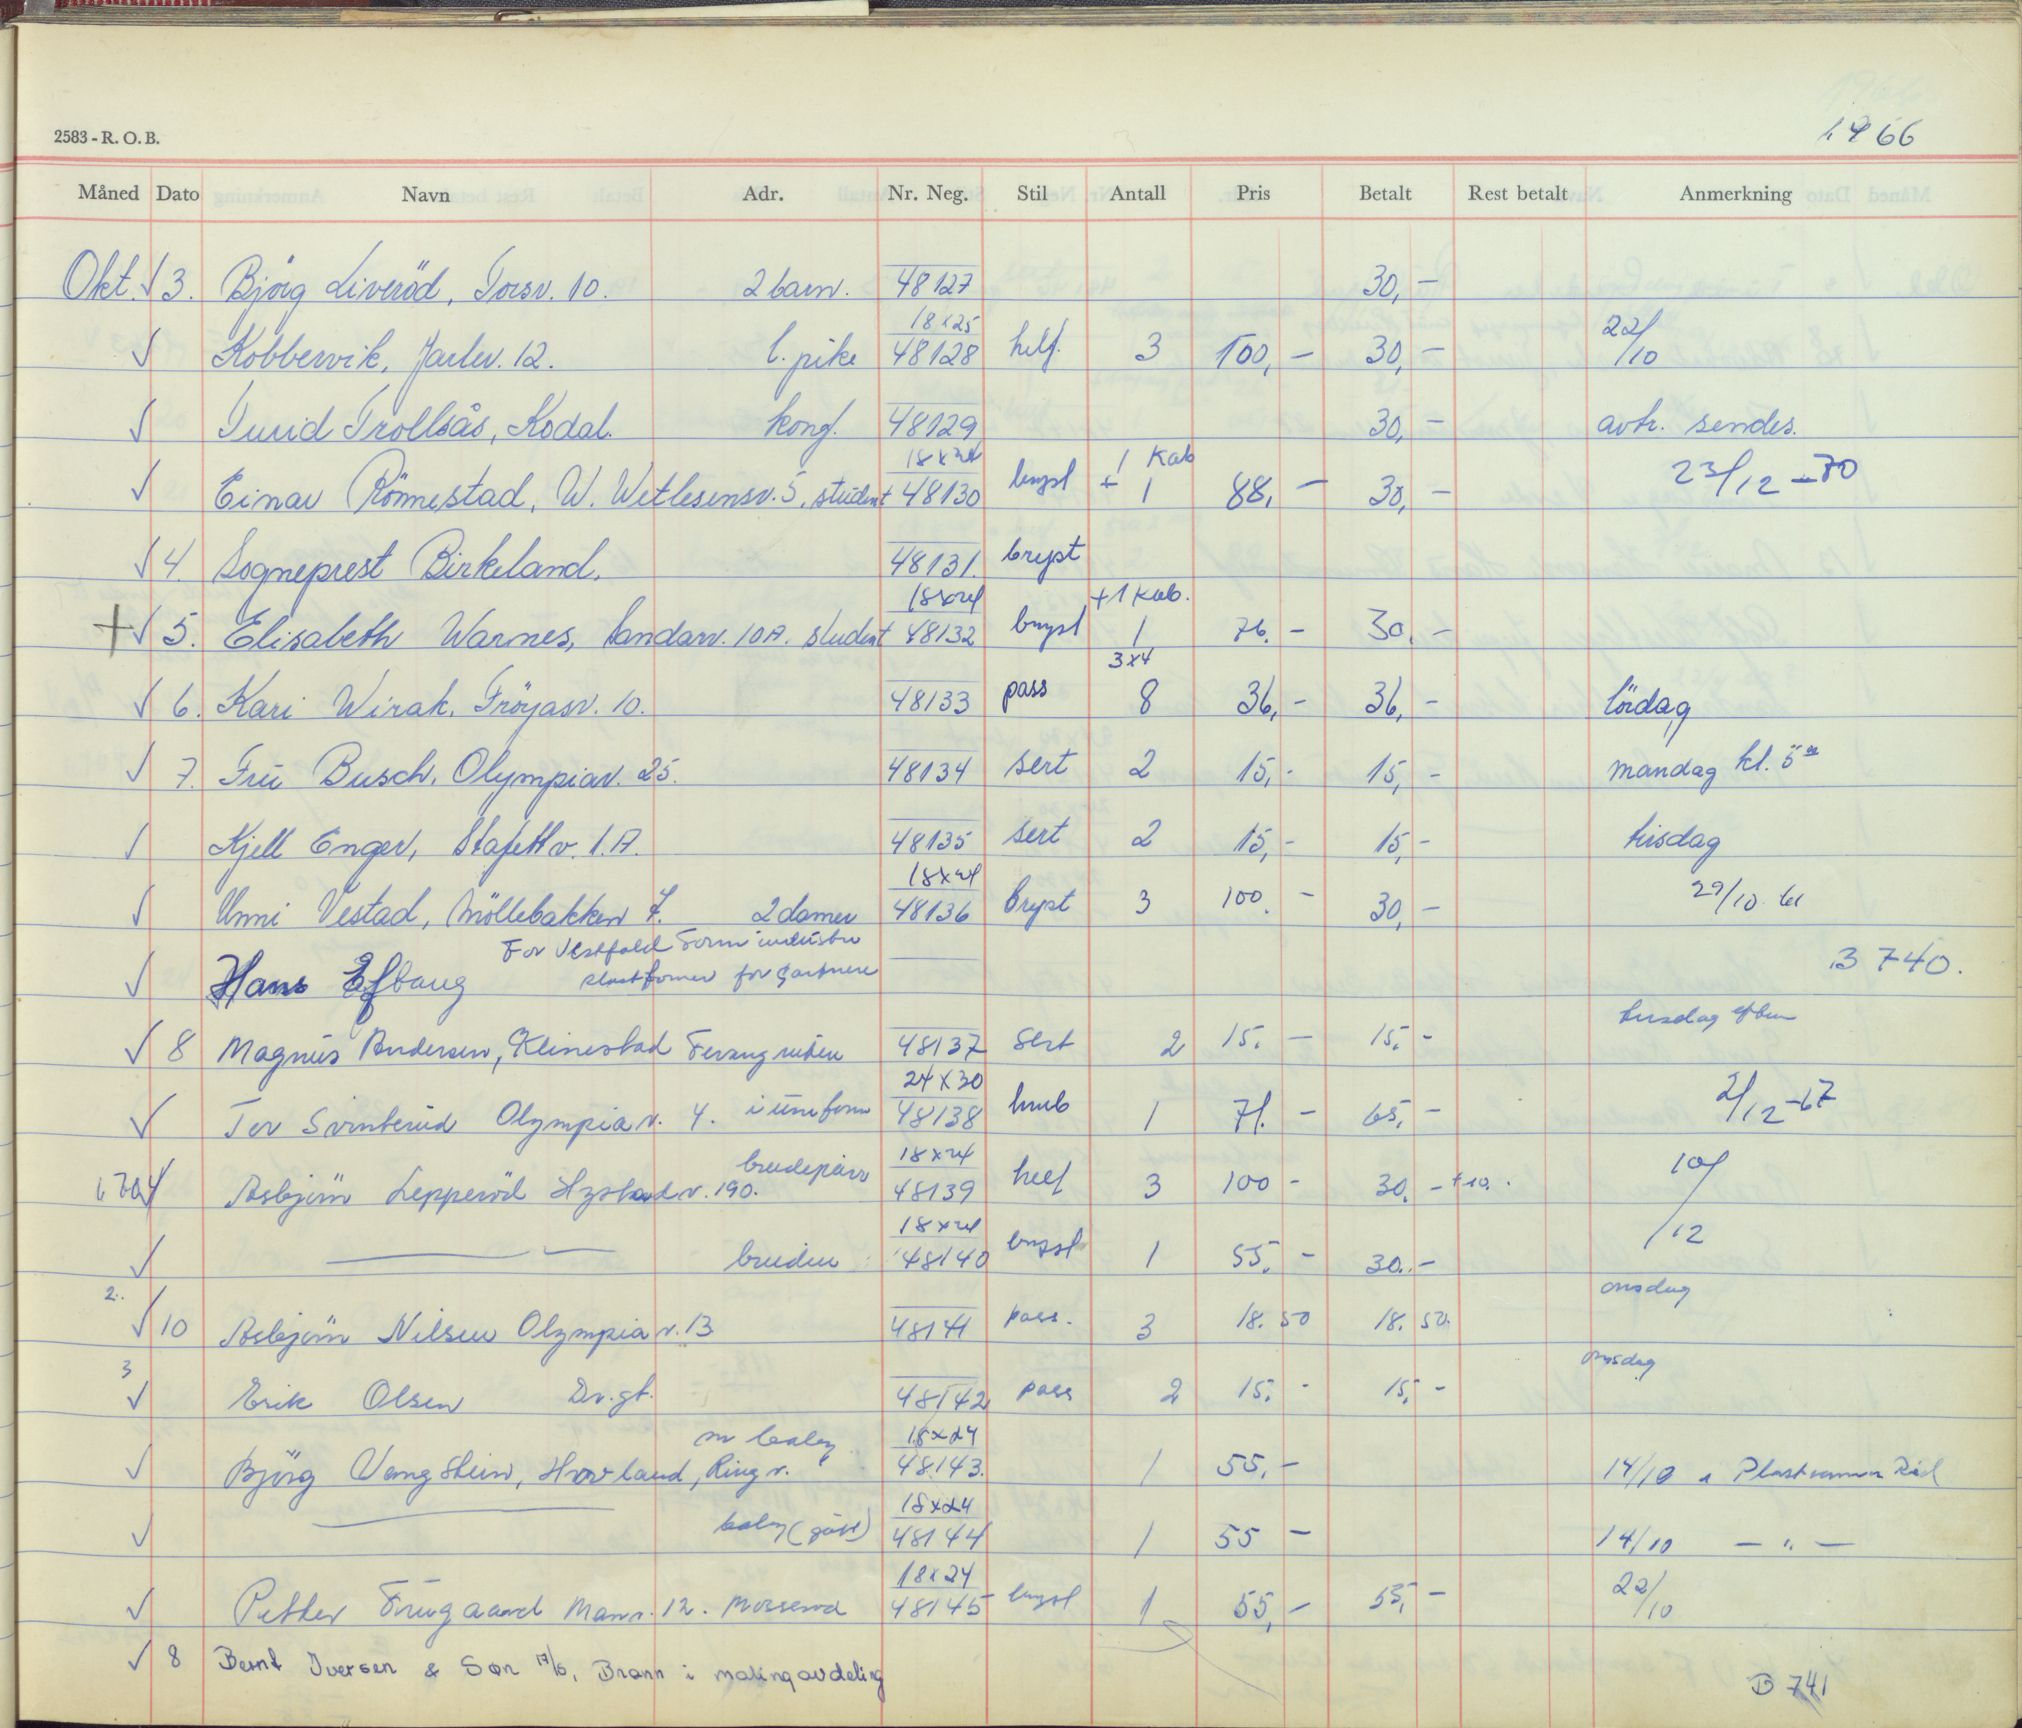 1966
2583 - R. O. B.
Måned Dato Navn Adr. Nr. Neg. Stil Antall Pris Betalt Rest betalt Anmerkning
Okt. √ 3. Björg Liveröd, Torsv. 10. 2 barn. 48127 30,-
18x25 22/10
√ Kobbervik, Jarlev. 12. l. pike 48128 helf. 3 100,- 30,-
√ Turid Trollsås, Kodal. konf. 48129 30,- avtr. sendes.
18x24 1 Kab
√ Einar Rönnestad, W. Wetlesensv. 5, student 48130 bryst + 1 88,- 30,- 23/12 - 70
√ 4. Sogneprest Birkeland. 48131. bryst
18x24 + 1 Kab.
+ √ 5. Elisabeth Warnes, Sandarv. 10A. student 48132 bryst 1 76.- 30.-
3x4
√ 6. Kari Wirak, Fröyasv. 10. 48133 pass 8 36,- 36,- lördag
√ 7. Fru Busch, Olympiav. 25. 48134 sert 2 15,- 15,- mandag kl. 5
√ Kjell Enger, Stafettv. 1.A. 48135 sert 2 15,- 15,- tirsdag
18x24
√ Unni Vestad, Möllebakken 7. 2 damer 48136 Bryst 3 100.- 30,- 29/10
For Vestfold Form industri
√ Hans plastformer for gartnere B 740.
√ 8 Magnus Andersen, Klinestad 48137 Sert 2 15.- 15.-
24x30
√ Tor Olympiav. 4. i uniform 48138 1 71.- 65.- 2/12-67
18x24
√ Asbjörn Lepperöd Hystadv. 190. brudepar 48139 helf 3 100- 30.- +10. 10/12
18x24
√ bruden 48140 bryst 1 55.- 30.-
2.
√ 10 Asbjörn Nilsen Olympiav. 13 48141 pass. 3 18.50 18.50. onsdag
3
√ Erik Olsen Dr. gt. 48142 pass 2 15.- 15.- onsdag
m baby 18x24
√ Björg Vangstein, Hovland, Ringv. 48143. 1 55,- 14/10 i Plastramme
18x24
√ baby 48144 1 55- 14/10 - " -
18x24 22/10
√ Petter 12. 48145 bryst 1 55,- 55,-
√ 8 Bernt Iversen & Søn A/S. Brann i malingavdeling B 741